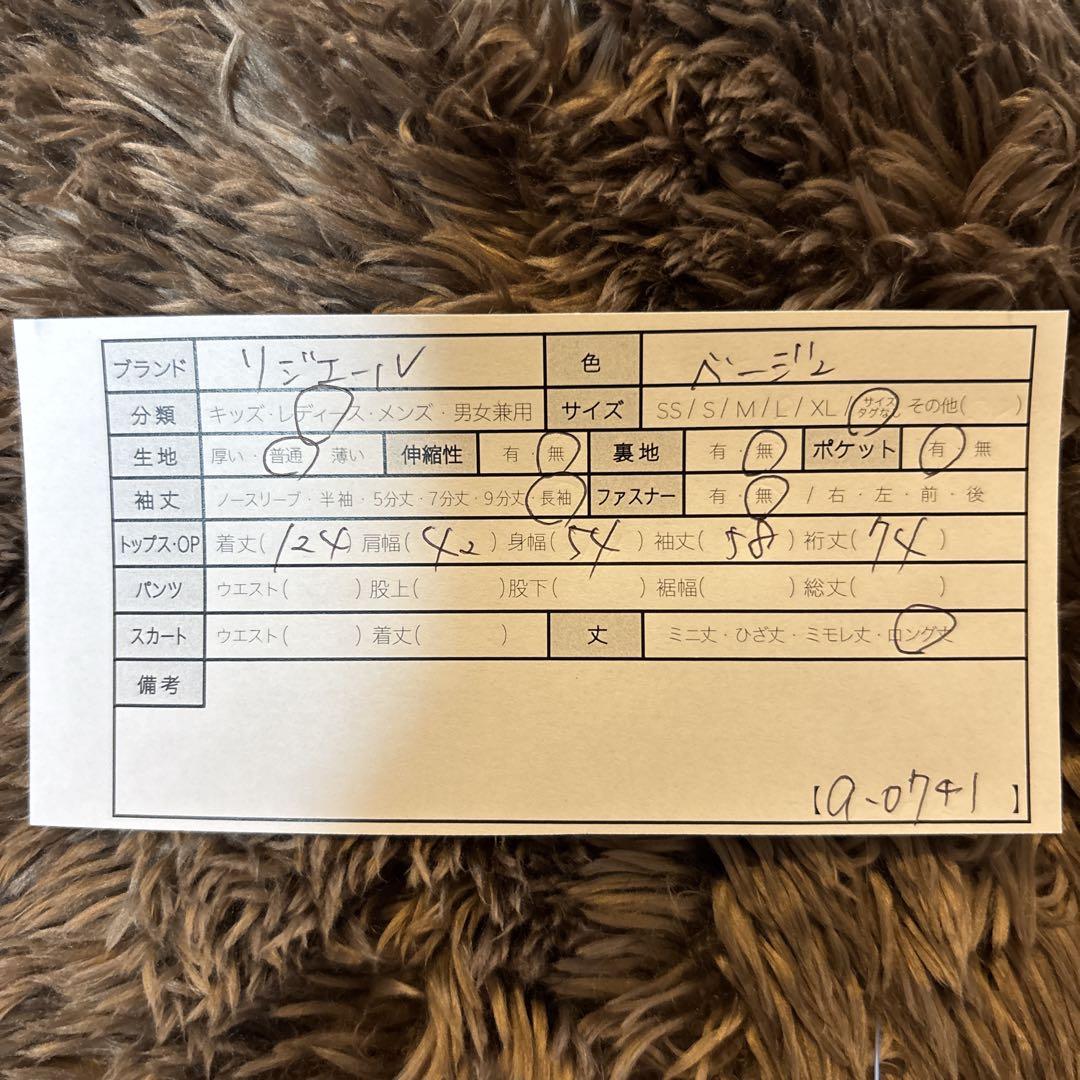 ブランド リジエール 色 ベージュ
分類 キッズ・レディース・メンズ・男女兼用 サイズ SS / S / M / L / XL / サイズタグなし その他( )
生地 厚い・普通・薄い 伸縮性 有・無 裏地 有・無 ポケット 有・無
袖丈 ノースリーブ・半袖・5分丈・7分丈・9分丈・長袖 ファスナー 有・無 / 右・左・前・後
トップス・OP 着丈( 124 ) 肩幅( 42 ) 身幅( 54 ) 袖丈( 58 ) 裄丈( 74 )
パンツ ウエスト( ) 股上( ) 股下( ) 裾幅( ) 総丈( )
スカート ウエスト( ) 着丈( ) 丈 ミニ丈・ひざ丈・ミモレ丈・ロング丈
備考
【a-0741】